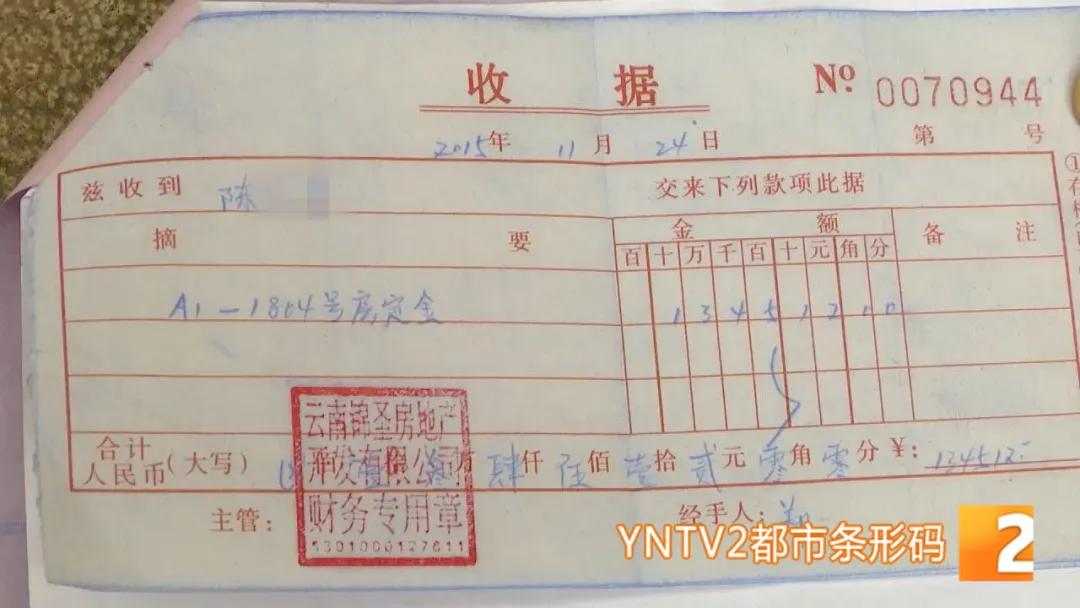 收据 № 0070944
2015年 11月 24日 第 号
兹收到 陈 交来下列款项此据
摘要 金额 备注
百 十 万 千 百 十 元 角 分
A1-1804号房定金 1 3 4 5 1 2 0 0
合计
人民币(大写) 万 肆仟 伍佰 壹拾 贰元 零角 零分 ¥: 134512
云南锦圣房地产
开发有限公司
财务专用章
主管: 经手人:
YNTV2都市条形码 2